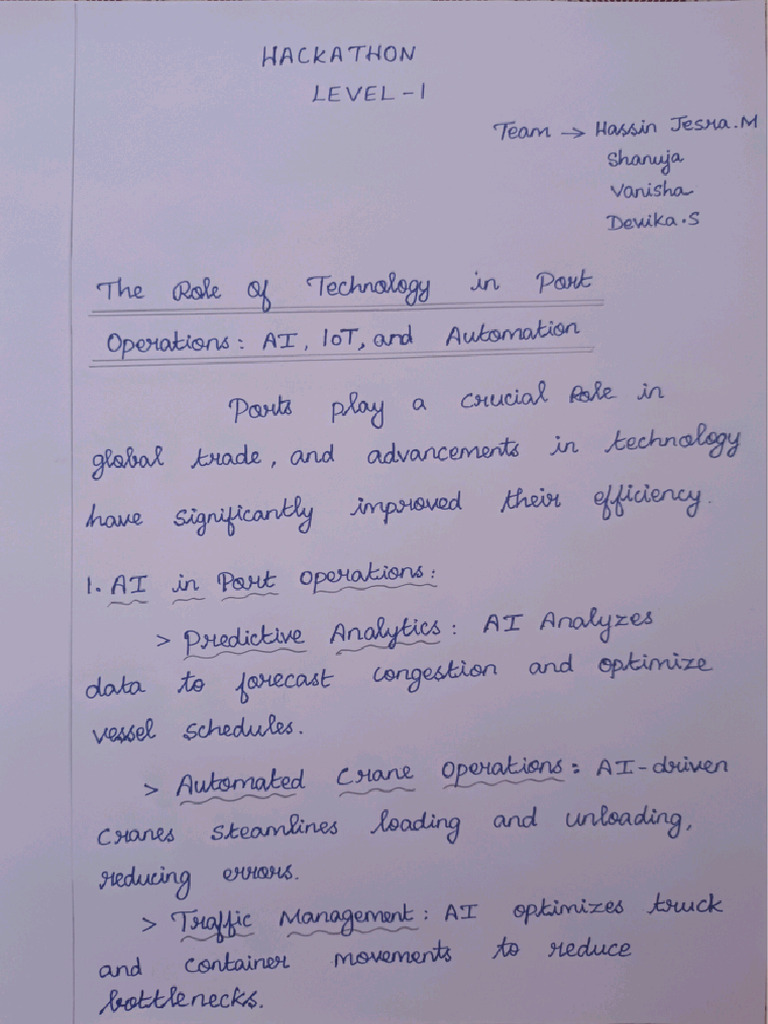 HACKATHON
LEVEL-1
Team → Hassin Jesna.M
Shanuja
Vanisha
Devika.S
The Role of Technology in Port
Operations: AI, IoT, and Automation
Ports play a crucial Role in
global trade, and advancements in technology
have significantly improved their efficiency.
1. AI in Port Operations:
> Predictive Analytics: AI Analyzes
data to forecast congestion and optimize
vessel schedules.
> Automated Crane Operations: AI-driven
cranes steamlines loading and unloading,
reducing errors.
> Traffic Management: AI optimizes truck
and container movements to reduce
bottlenecks.